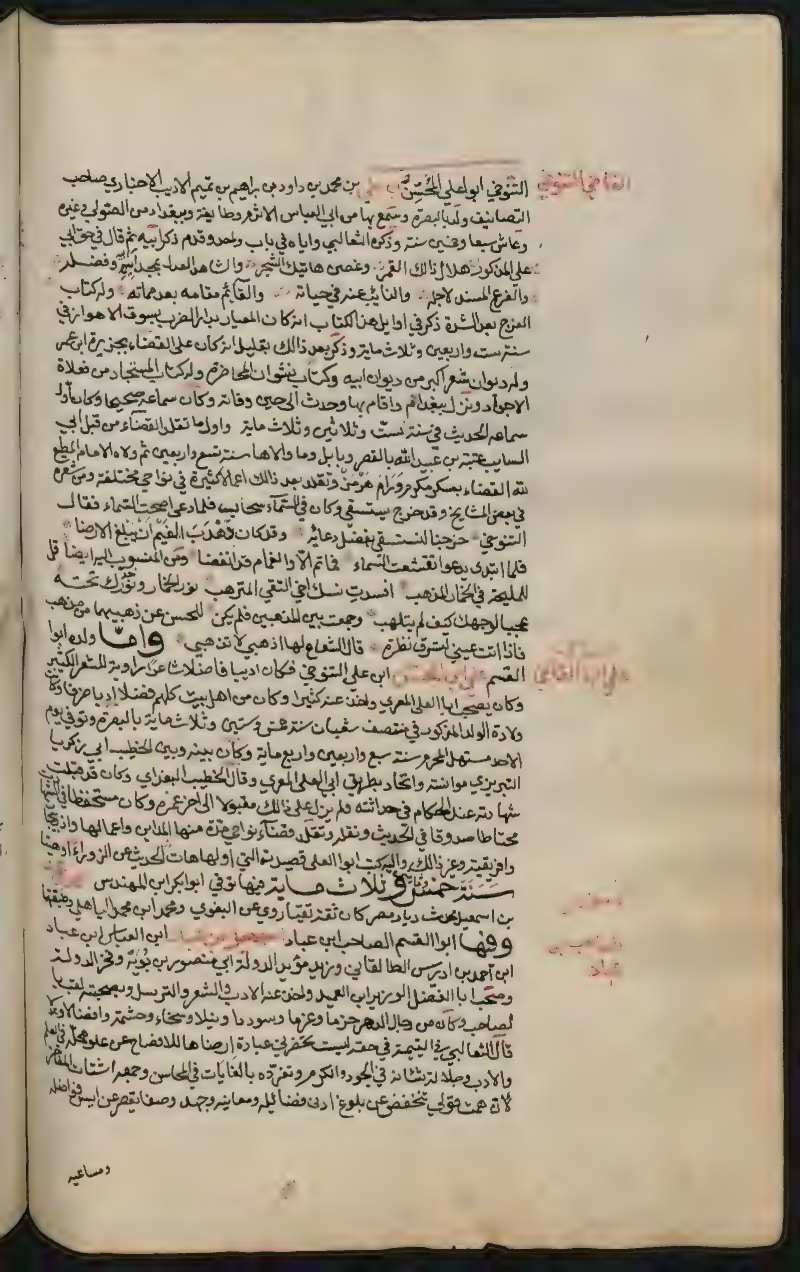 القاضي التنوخي
التنوخي ابو علي المحسن بن علي بن محمد بن داود بن ابراهيم بن تميم الاديب الاخباري صاحب
التصانيف ولد بالبصرة وسمع بها من ابي العباس الاثرم وطايفة وببغداد من الصولي وغيره
وعاش سبعا وخمسين سنة وذكره الثعالبي واياه في باب واحد وقدم ذكر ابيه ثم قال في حق ابي
علي المذكور هلال ذالك القمر وغصن هاتيك الشجرة والشاهد العدل بمجد ابيه وفضله
والفرع المسند لاصله والنايب عنه في حياته والقايم مقامه بعد مماته وله كتاب
الفرج بعد الشدة ذكر في اوايل هذا الكتاب انه كان المعيار بدار الضرب بسوق الاهواز في
سنة ست واربعين وثلاث ماية وذكر بعد ذالك بقليل انه كان على القضاء بجزيرة ابن عمر
وله ديوان شعر اكبر من ديوان ابيه وكتاب نشوان المحاضرة وله كتاب المستجاد من فعلات
الاجواد ونزل ببغداد واقام بها وحدث الى حين وفاته وكان سماعه صحيحا وكان اول
سماعه الحديث في سنة ست وثلاثين وثلاث ماية واول ما تقلد القضاء من قبل ابي
السايب عتبة بن عبيد الله بالقصر وبابل وما والاها سنة تسع واربعين ثم ولاه الامام المطيع
لله القضاء بعسكر مكرم ورام هرمز وتقلد بعد ذالك اعمالا كثيرة في نواحي مختلفة ومن شعره
في بعض المشايخ وقد خرج يستسقي وكان في السماء سحاب فلما دعى اصحت السماء فقال
التنوخي خرجنا لنستسقي بفضل دعائه وقد كان هدب الغيم ان يبلغ الارضا
فلما ابتدى يدعوا تقشعت السماء فما تم الا والغمام قد انفضا ومن المنسوب اليه ايضا قل
للمليحة في الخمار المذهب افسدت نسك اخي التقي المترهب نور الخمار ونور خدك تحته
عجبا لوجهك كيف لم يتلهب وجمعت بين المذهبين فلم يكن للحسن عن ذهبيهما من مذهب
فاذا اتت عيني لتسرق نظرة قال الشعاع لها اذهبي لا تذهبي واما ولده ابوا
القسم علي بن المحسن ابن علي التنوخي فكان اديبا فاضلا شاعرا راوية للشعر الكثير
وكان يصحب ابا العلى المعري واخذ عنه كثيرا وكان من اهل بيت كلهم فضلا ادبا ظرفا وكانت
ولادة الولد المذكور في منتصف شعبان سنة خمس وستين وثلاث ماية بالبصرة وتوفي يوم
الاحد مستهل المحرم سنة سبع واربعين واربع ماية وكان بينه وبين الخطيب ابي زكريا
التبريزي موانسة واتحاد بطريق ابي العلى المعري وقال الخطيب البغدادي وكان قد قبلت
شهادته عند الحكام في حداثته ولم يزل على ذالك مقبولا الى اخر عمره وكان مستحفظا في الشهادة
محتاطا صدوقا في الحديث وتقلد قضاء نواحي عدة منها المداين واعمالها واذربيجان
وافريقية وغير ذالك واليه كتب ابوا العلى قصيدته التي اولها هات الحديث عن الزوراء او هيتا
سنة خمس وثلاث ماية فيها توفي ابوا بكر ابن المهندس
بن اسمعيل محدث ديار مصر كان ثقة تقيا روى عن البغوي ومحمد ابن محمد الباهلي وطبقتها
وفيها ابوا القسم الصاحب ابن عباد ابن العباس ابن عباد
ابن احمد بن ادريس الطالقاني وزير مؤيد الدولة ابي منصور بن بويه وفخر الدولة
وصحب ابا الفضل الوزير ابن العميد واخذ عنه الادب والشعر والترسل وبصحبته لقب با
لصاحب وكان من رجال الدهر حزما وعزما وسوددا ونبلا وسخاء وحشمة وافضالا وعدلا
قال الثعالبي في اليتيمة في حقه ليست تحضرني عبارة ارضاها للافصاح عن علو محله في العلم
والادب وجلالة شانه في الجود والكرم وتفرده بالغايات في المحاسن وجمعه اشتات المفاخر
لان همة قولي تنخفض عن بلوغ ادنى فضائله ومعاليه وجهد وصفي يقصر عن ايسر فواضله
ومساعيه